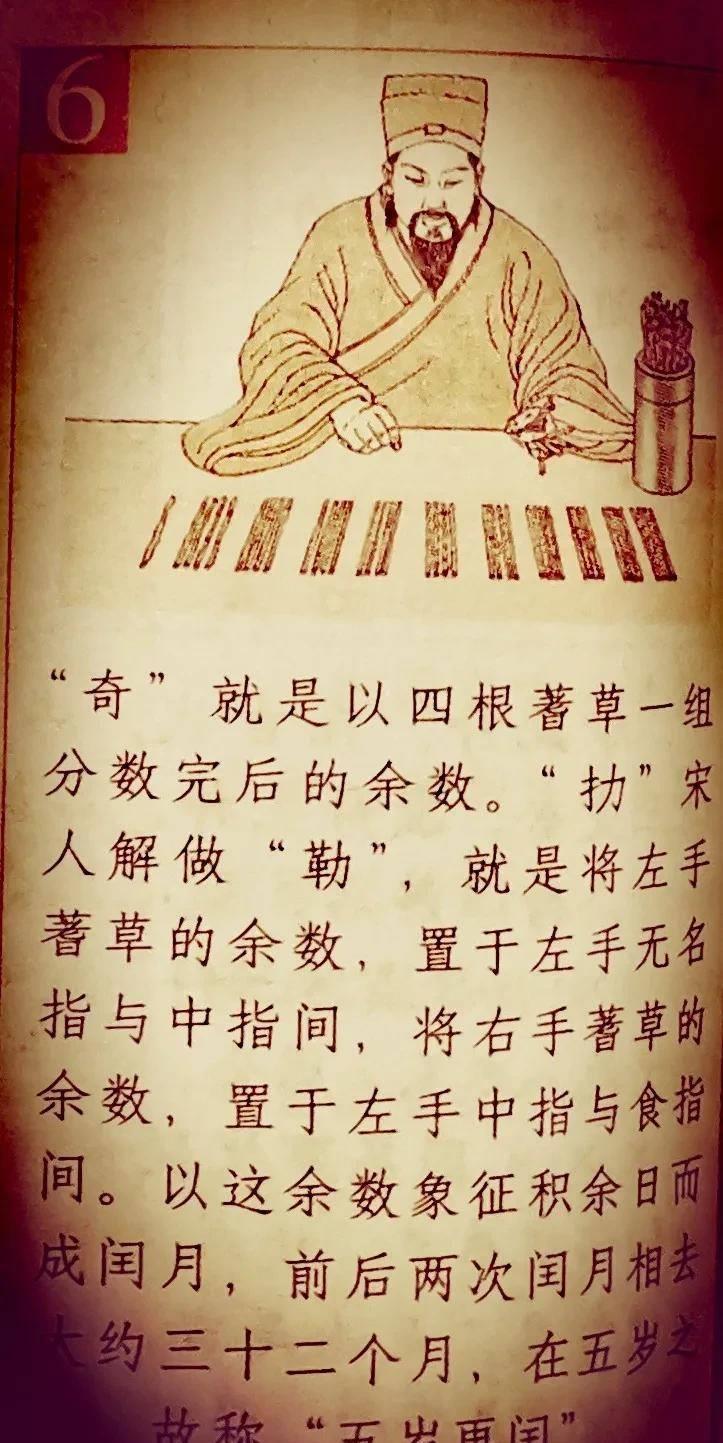 6
“奇”就是以四根蓍草一组
分数完后的余数。“扐”宋
人解做“勒”，就是将左手
蓍草的余数，置于左手无名
指与中指间，将右手蓍草的
余数，置于左手中指与食指
间。以这余数象征积余日而
成闰月，前后两次闰月相去
大约三十二个月，在五岁之
故称“五岁再闰”